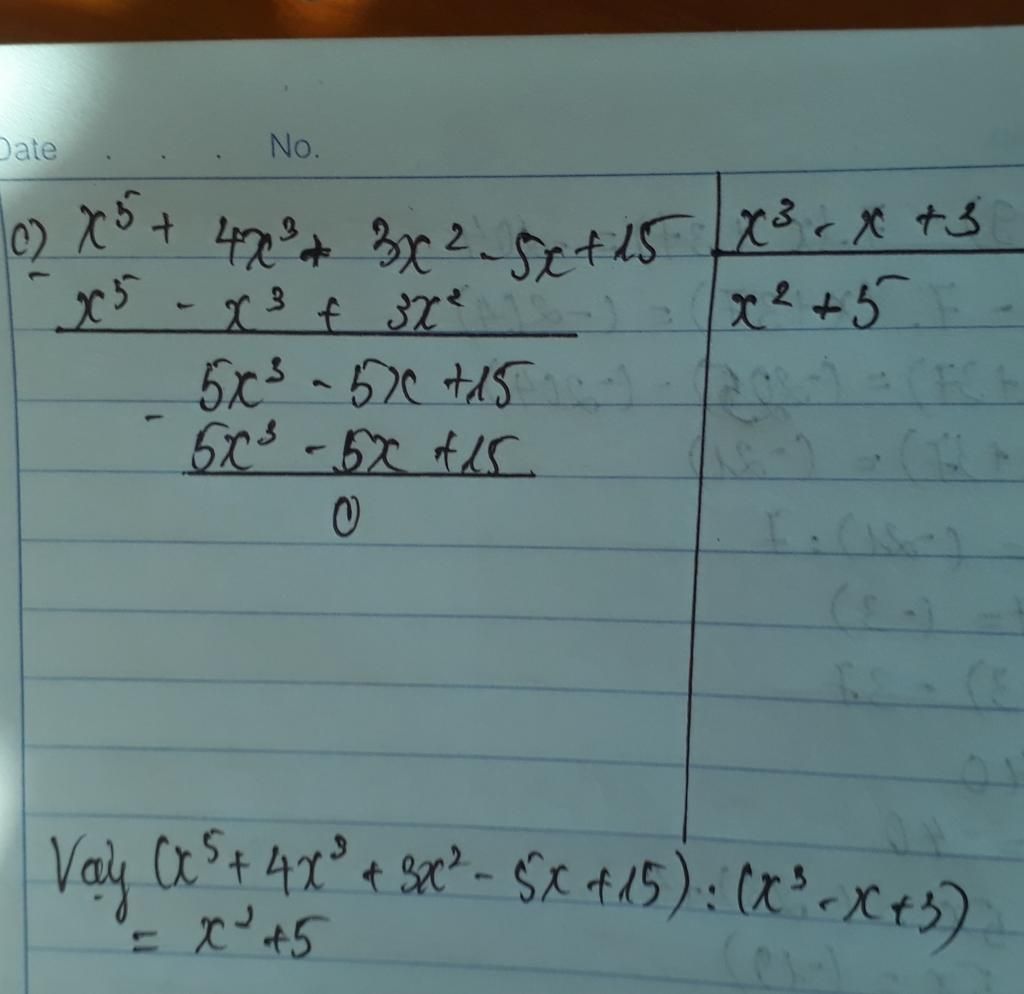 Date . . . . No.
c) x⁵ + 4x³ + 3x² - 5x + 15 | x³ - x + 3
- x⁵ - x³ + 3x² | x² + 5
5x³ - 5x + 15
- 5x³ - 5x + 15
0
Vậy (x⁵ + 4x³ + 3x² - 5x + 15) : (x³ - x + 3)
= x² + 5